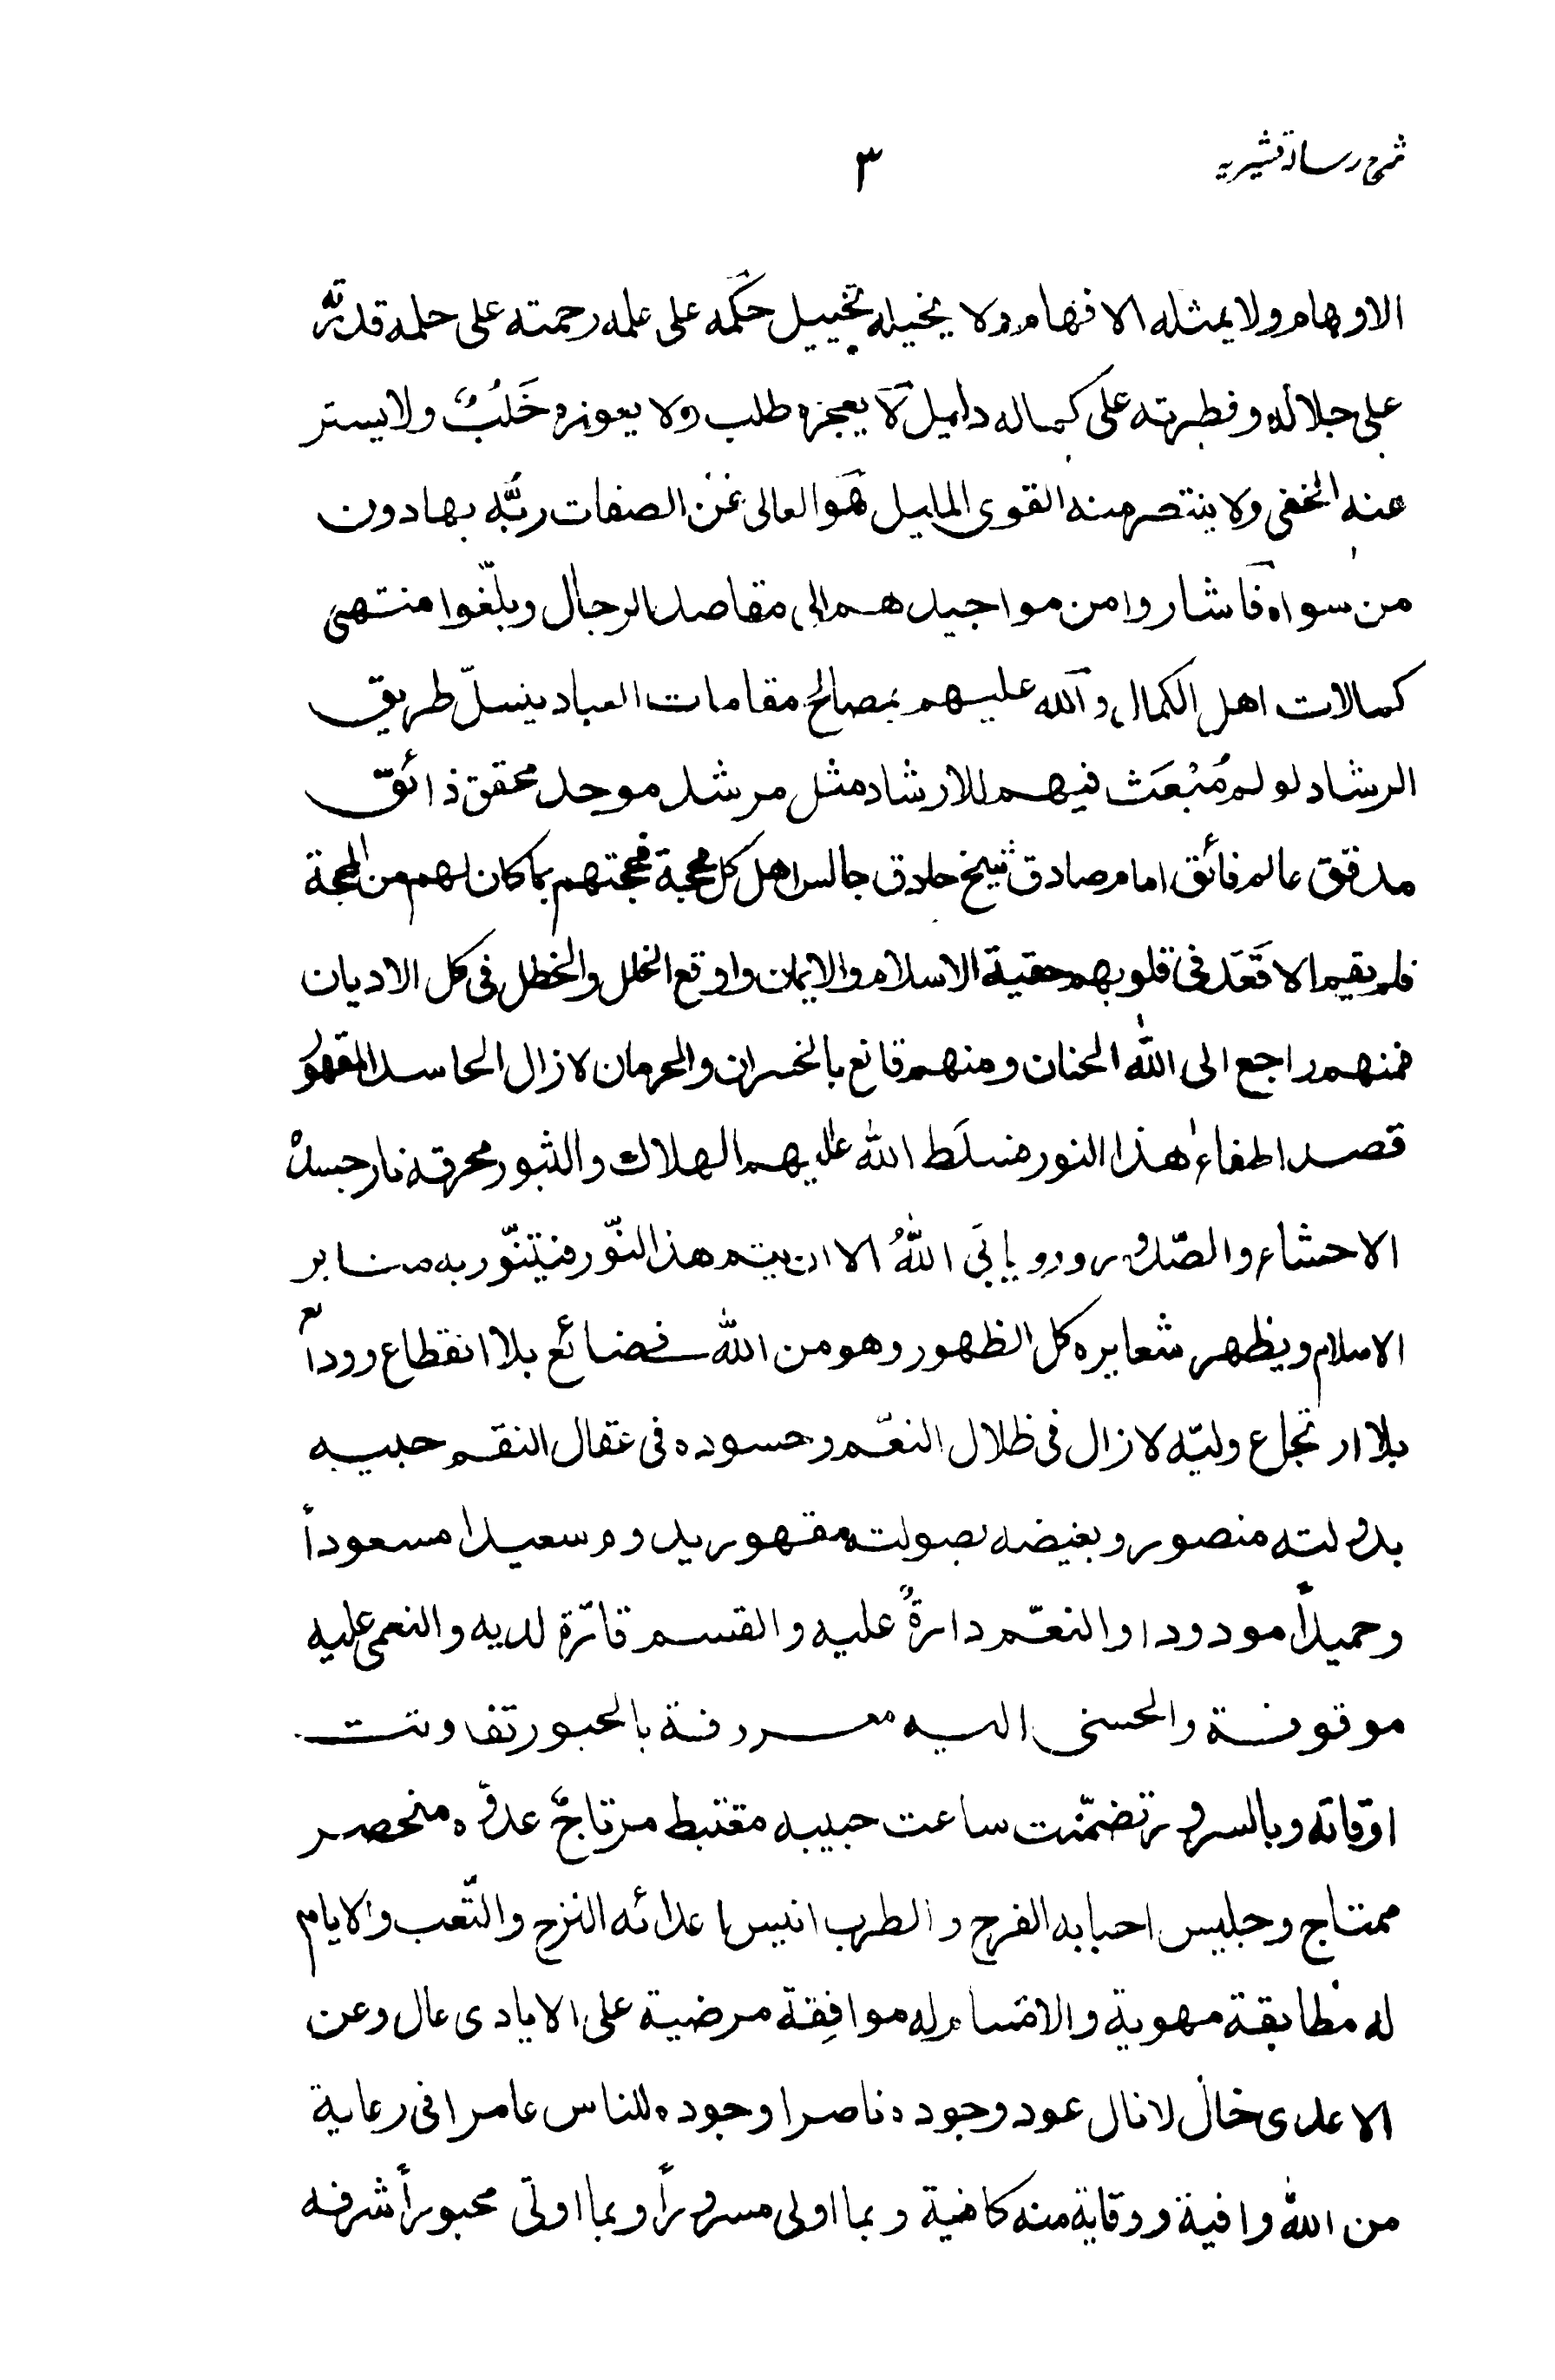 شرح رسالة قشيريه
٣
الاوهام ولا يمثله الافهام ولا يخيله تخييل حكمه على علمه رحمته على حلمه قدرته
على جلاله وفطرته على كماله دليل لا يعجزه طلب ولا يعوزه خَلَبٌ ولا يستر
عنه الخفى ولا ينتصر منه القوى المايل هو العالى عن الصفات ربّه بهادون
من سواه فاشاروا من مواجيدهم الى مقاصد الرجال وبلّغوا منتهى
كمالات اهل الكمال والله عليهم بمصالح مقامات العباد ينسلّ طريق
الرشاد لو لم مُنْبَعَث فيهم للارشاد مثل مرشد موحد محقق ذائق
مدقق عالم فائق امام صادق شيخ حاذق جالس اهل كل محجة فحجتهم بما كان لهم من الحجة
فلم يقيم الا قَعَدَ فى قلوبهم حقية الاسلام والايمان واوقع الخلل والخطل فى كل الاديان
فمنهم راجع الى الله الحنان ومنهم قانع بالخسران والحرمان لازال الحاسد المقهور
قصد اطفاء هذا النور فسلَط الله عليهم الهلاك والثبور محرقة نار حسد
الاحشاء والصّدور ويابَى اللهُ الا ان يتم هذا النّور فيتنّور به منابر
الاسلام ويظهر شعايره كل الظهور وهو من الله فى ضائع بلا انقطاع وروداً
بلا ارتجاع وليّه لازال فى ظلال النعّم وحسوده فى عقال النقم حبيبه
بدولته منصور وبغيضه بصولته مقهور يدوم سعيدا مسعوداً
وحميداً مودودا والنعّم دارةٌ عليه والقسم قارّة لديه والنعمى عليه
موقوفة والحسنى اليه معروفة بالحبور تفاوتت
اوقاته وبالسرور تضمّنت ساعت حبيبه مغتبط مرتاحٌ عدوّه منحصر
ممتاج وجليس احبابه الفرح والطرب انيس اعدائه النزح والتّعب والايام
له مطابقة مهوية والاقسام له موافِقة مرضية على الايادى عال وعن
الاعدى خال لانال عود وجوده ناصرا وجوده للناس عامرا فى رعاية
من الله وافية ووقاية منه كافية وبما اولى مسروراً وبما اوتى محبوراً شرفه